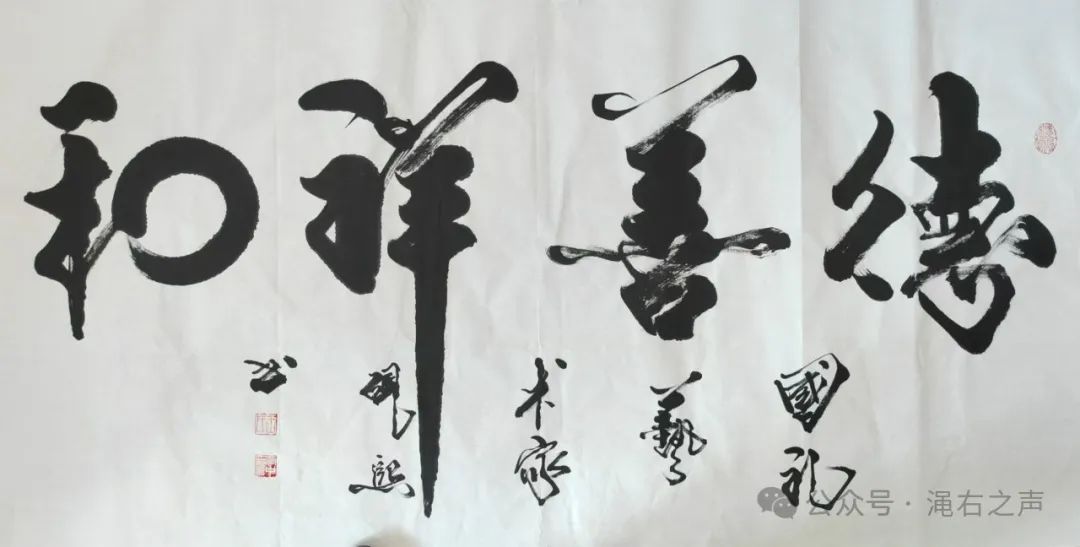 德善祥和
國礼
藝
术家
熙
书
公众号 · 渑右之声